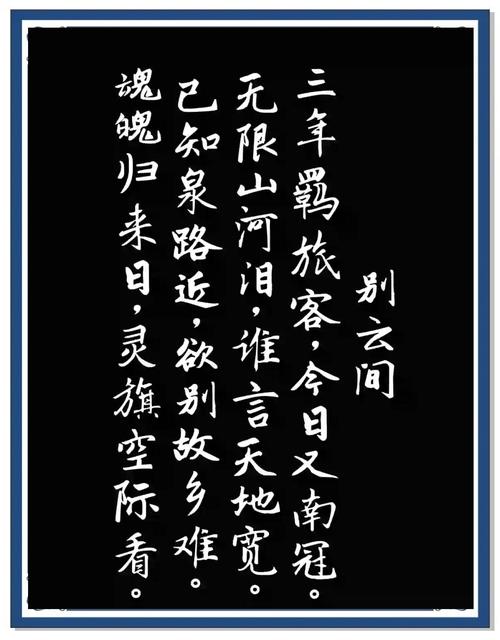 别云间
三年羁旅客，今日又南冠。
无限山河泪，谁言天地宽。
已知泉路近，欲别故乡难。
魂魄归来日，灵旗空际看。